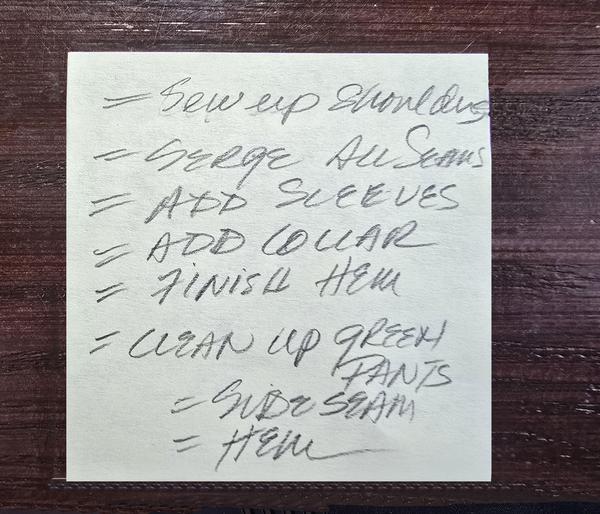 = Sew up Shoulders
= SERGE ALL SEAMS
= ADD SLEEVES
= ADD COLLAR
= FINISH HEM
= CLEAN UP GREEN
PANTS
= SIDE SEAM
= HEM